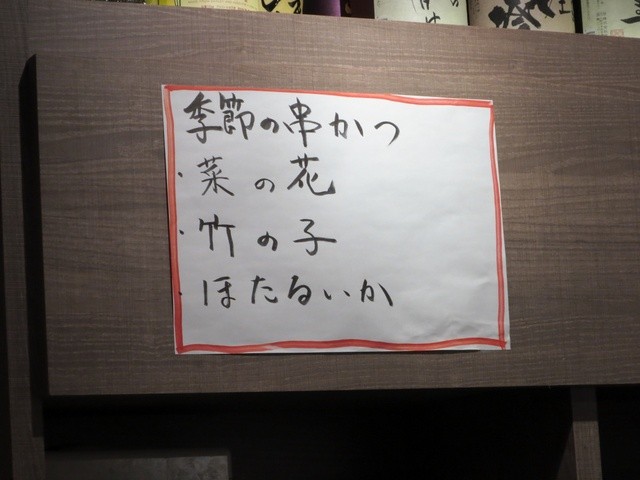 季節の串かつ
・菜の花
・竹の子
・ほたるいか